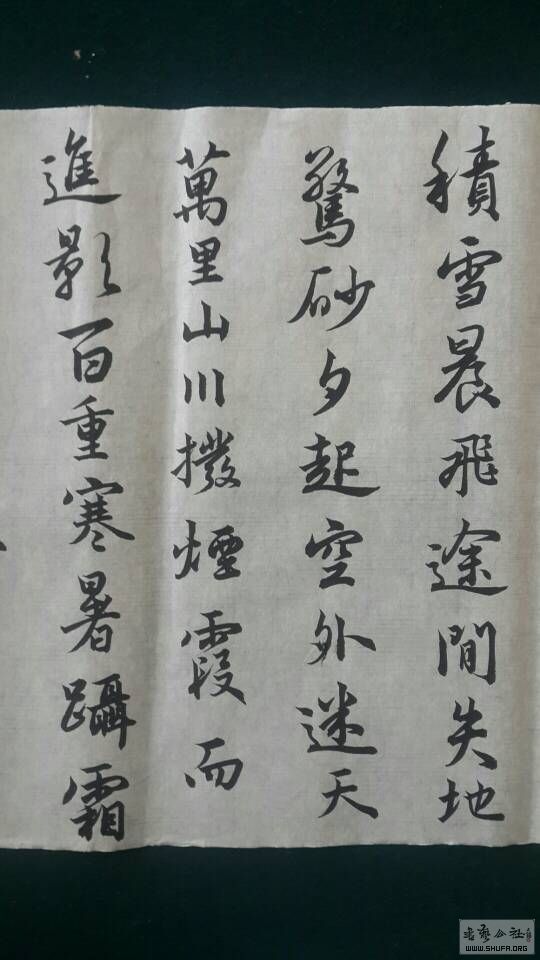 積雪晨飛途間失地
驚砂夕起空外迷天
萬里山川撥煙霞而
進影百重寒暑躡霜
WWW.SHUFA.ORG